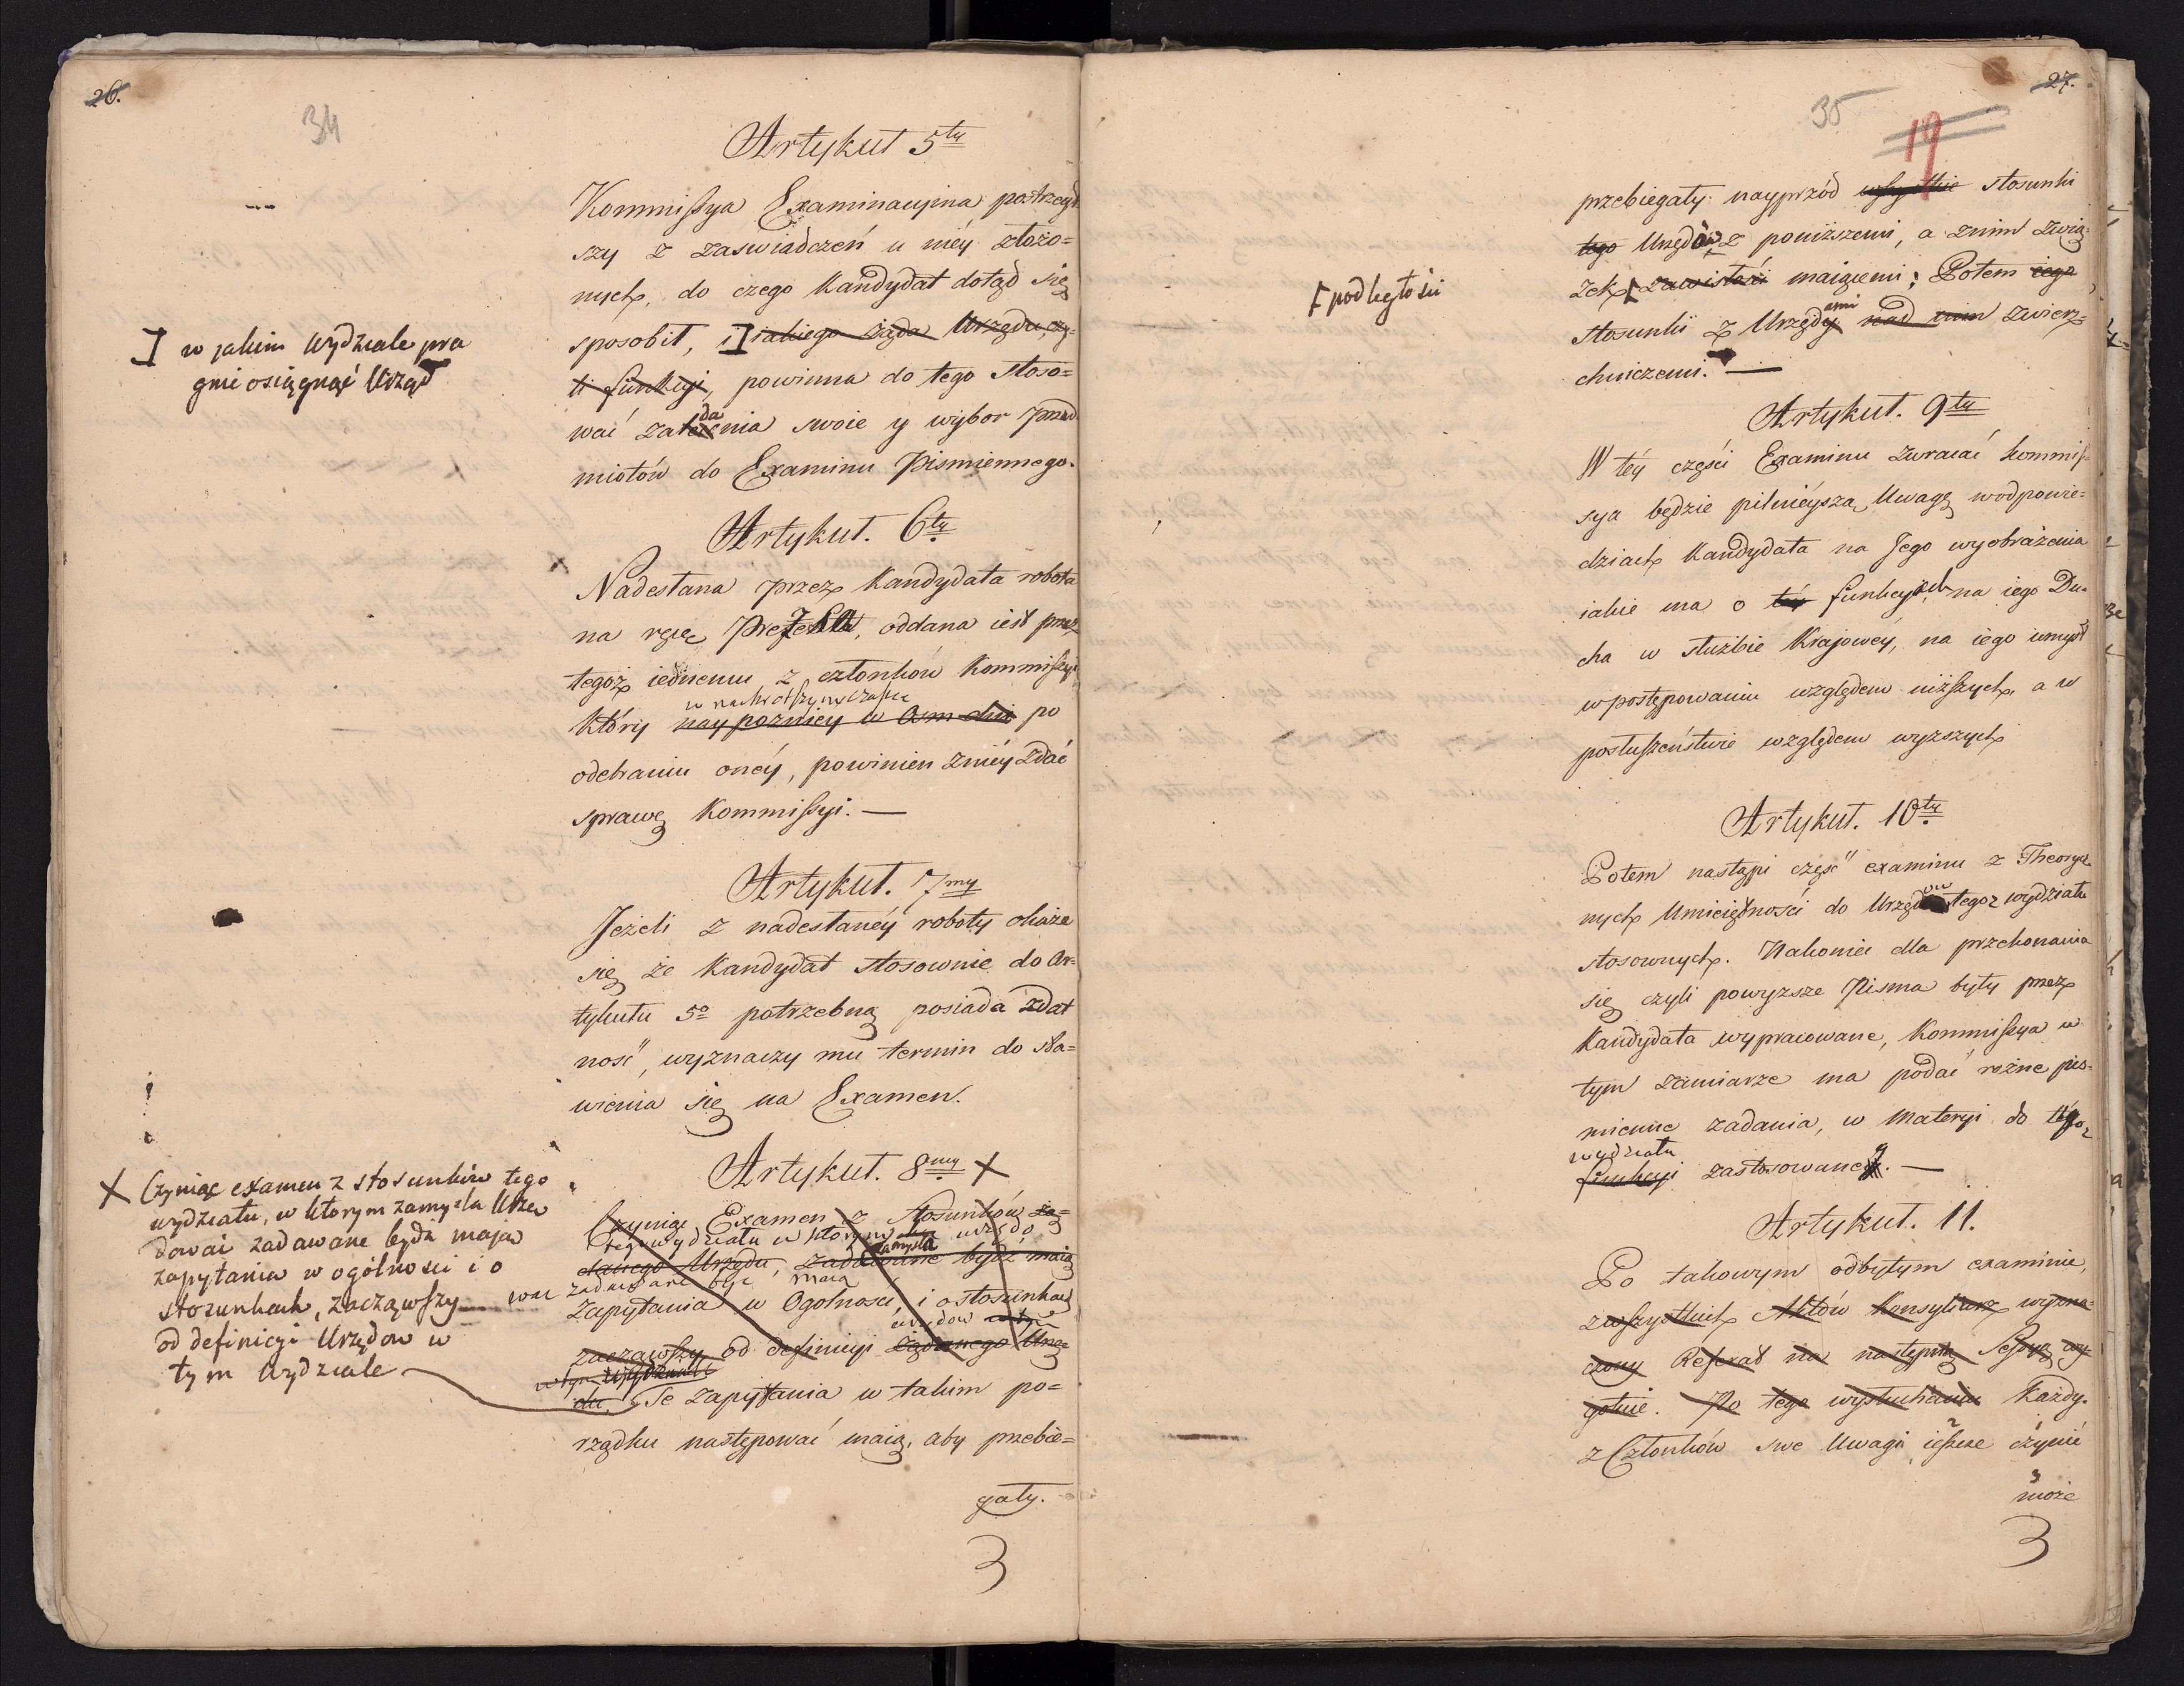 26.
34
Artykuł 5ty
Kommissya Examinacyina postrzegł
szy z zaswiadczeń u niéy złożo=
nych, do czego Kandydat dotąd się
sposobił, i ] iakiego żąda Urzędu, czy=
li funkcyi, powinna do tego stoso=
wać zadania swoie y wybor przed
miotów do Examinu Pismiennego.
] w jakim Wydziale pra
gnie osiągnąć Urząd
Artykuł. 6ty
Nadesłana przez Kandydata robota
na ręce Prezesa, oddana iest przez
tegoż iednemu z członków Kommissyi
w naykrotszym czasie
który naypozniey w Osm dni po
odebraniu onéy, powinien zniéy zdać
sprawę Kommissyi. —
Artykuł. 7my
Jeżeli z nadesłanéy roboty okaże
się że Kandydat stosownie do Ar=
tykułu 5o potrzebną posiada zdat
ność, wyznaczy mu termin do sta=
wienia się na Examen.
Artykuł. 8my X
X Czyniąc examen z stosunków tego
wydziału, w którym zamyśla Urzę
dować zadawane bydź mają
zapytania w ogólności i o
stosunkach, zacząwszy
od definicyi Urzędow w
tym Wydziale
Czyniąc Examen z Stosunków żą=
tego wydziału w którym urzędo
zamyśla
danego Urzędu, zadawane bydź maią
wać zadawane być maią
Zapytania w Ogolności, i o stosunkach
urzędow
zacząwszy od definicyi żądanego Urzę
w tym wydziale
du. Te zapytania w takim po=
rządku następować maią, aby przebie=
gały.
3
27.
35
19
przebiegały nayprzód wszystkie stosunki
tego Urzędów z poniższemi, a znim zwią=
zek [ zawisłości maiącemi; Potem iego
[ podległości
ami
stosunki z Urzędy nad nim zwierz=
chniczemi. —
Artykuł. 9ty
W téy części Examinu zwracać kommis=
sya będzie pilnieyszą Uwagę w odpowie=
dziach Kandydata na Jego wyobrażenia
iakie ma o téy funkcyach, na iego Du=
cha w służbie Krajowéy, na iego umysł
w postępowaniu względem niższych, a w
posłuszeństwie względem wyższych
Artykuł. 10ty
Potem nastąpi część examinu z Theorycz
nych Umieiętności do Urzędów tegoż wydziału
stosownych. Nakoniec dla przekonania
się czyli powyższe Pisma były przez
Kandydata wypracowane, Kommissya w
tym zamiarze ma podać różne pis=
mienne zadania, w materyi do tegoż
wydziału
funkcyi zastosowane. —
Artykuł. 11.
Po takowym odbytym examinie,
zwszystkich Aktów Konsyliarz wyzna=
czony Referat na następną Sessyą wy
gotuie. Po tego wysłuchaniu Każdy.
z Członków swe Uwagi ieszcze czynić
może
3